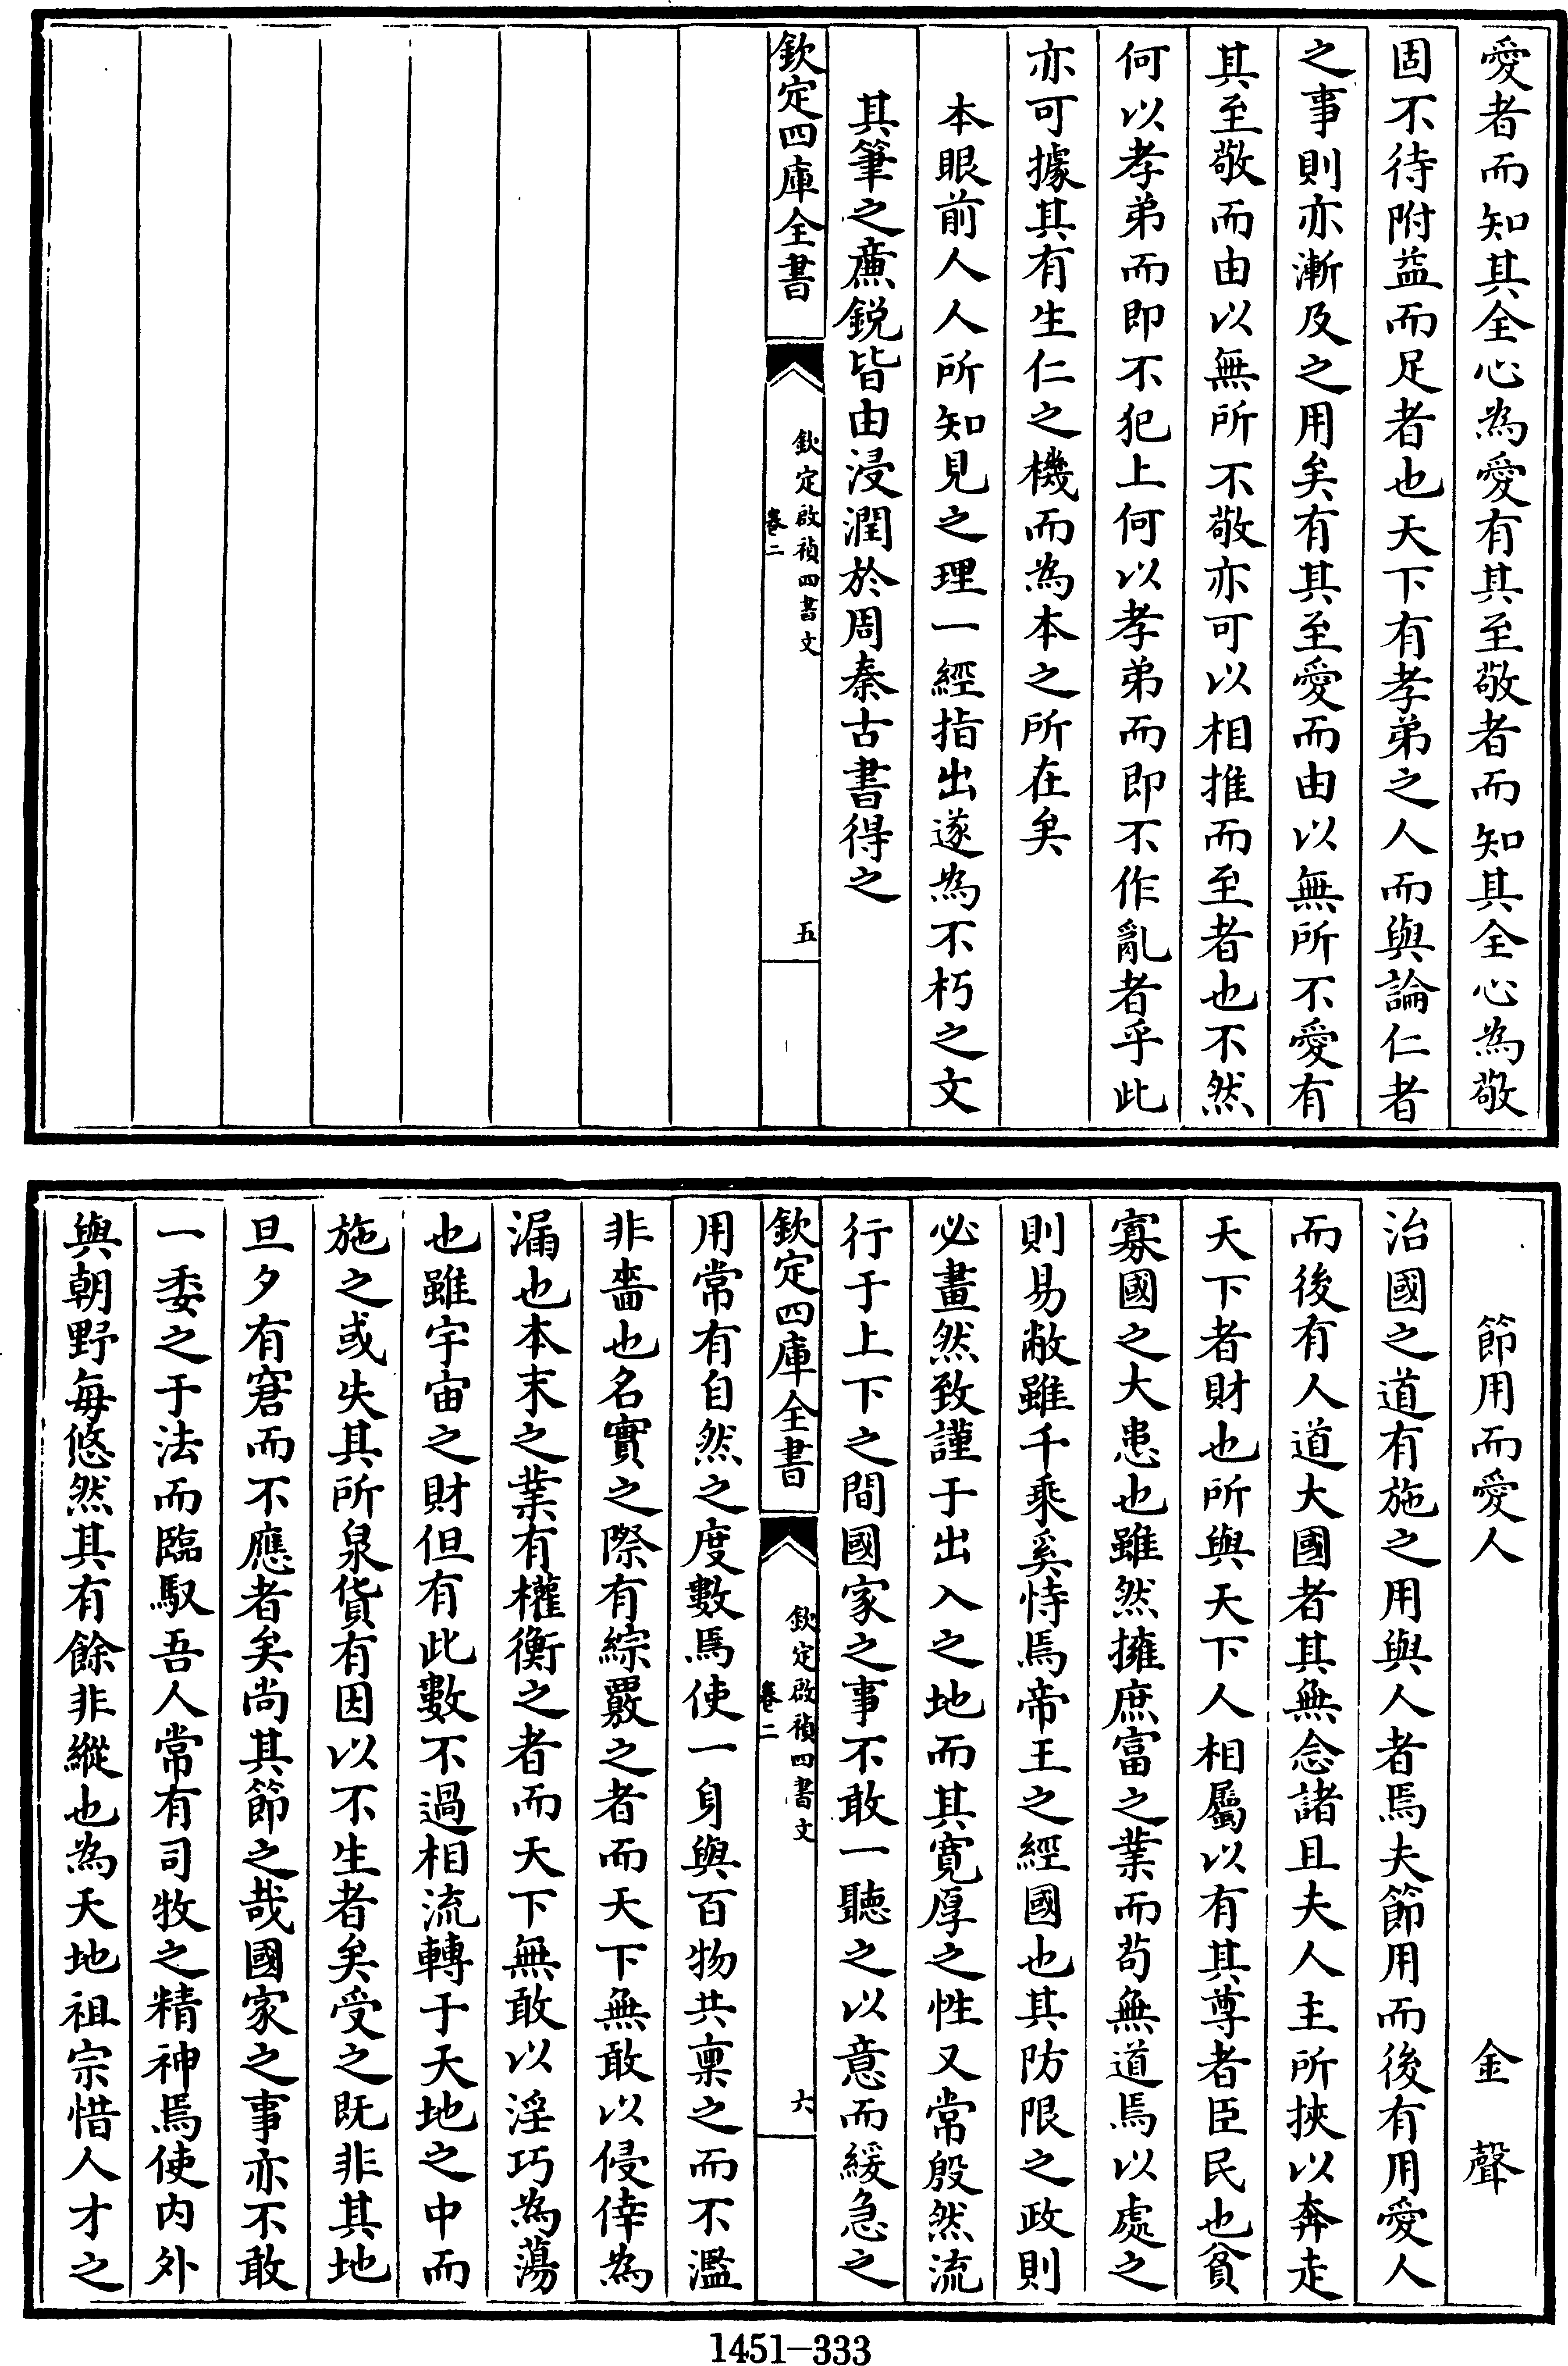 愛者而知其全心為愛有其至敬者而知其全心為敬
固不待附益而足者也天下有孝弟之人而與論仁者
之事則亦漸及之用矣有其至愛而由以無所不愛有
其至敬而由以無所不敬亦可以相推而至者也不然
何以孝弟而即不犯上何以孝弟而即不作亂者乎此
亦可據其有生仁之機而為本之所在矣
本眼前人人所知見之理一經指出遂為不朽之文
其筆之廉鋭皆由浸潤於周秦古書得之
欽定四庫全書
欽定啟禎四書文
卷二
五
節用而愛人 金聲
治國之道有施之用與人者焉夫節用而後有用愛人
而後有人道大國者其無念諸且夫人主所挾以奔走
天下者財也所與天下人相屬以有其尊者臣民也貧
寡國之大患也雖然擁庶富之業而苟無道焉以處之
則易敝雖千乘奚恃焉帝王之經國也其防限之政則
必畫然致謹于出入之地而其寬厚之性又常殷然流
行于上下之間國家之事不敢一聽之以意而緩急之
欽定四庫全書
欽定啟禎四書文
卷二
六
用常有自然之度數焉使一身與百物共稟之而不濫
非嗇也名實之際有綜覈之者而天下無敢以侵倖為
漏也本末之業有權衡之者而天下無敢以淫巧為蕩
也雖宇宙之財但有此數不過相流轉于天地之中而
施之或失其所泉貨有因以不生者矣受之既非其地
旦夕有窘而不應者矣尚其節之哉國家之事亦不敢
一委之于法而臨馭吾人常有司牧之精神焉使內外
與朝野每悠然其有餘非縱也為天地祖宗惜人才之
1451-333